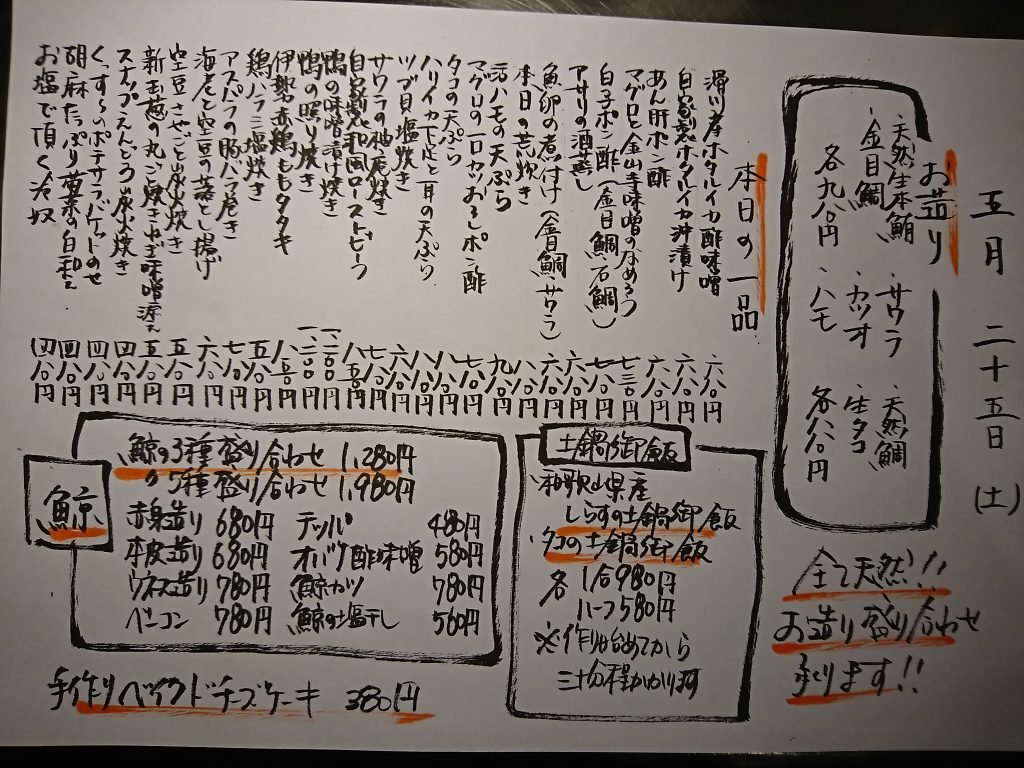 五月二十五日(土)
お造り
・天然生本鮪
・金目鯛
各九八〇円
・サワラ
・カツオ
・ハモ
・天然鯛
・生タコ
各八八〇円
全て天然!!
お造り盛り合わせ
承ります!!
本日の一品
滑川産ホタルイカ酢味噌 六八〇円
自家製ホタルイカ沖漬け 六八〇円
あん肝ポン酢 六八〇円
マグロと金山寺味噌のなめろう 七三〇円
白子ポン酢(金目鯛石鯛) 七八〇円
アサリの酒蒸し 六八〇円
魚卵の煮付け(金目鯛サワラ) 六八〇円
本日の荒炊き 八八〇円
活ハモの天ぷら 九八〇円
マグロの一口カツおろしポン酢 七八〇円
タコの天ぷら 八八〇円
ハリイカ下足と耳の天ぷら 八八〇円
ツブ貝塩炊き 六八〇円
サワラの柚庵焼き 七八〇円
自家製和風ローストビーフ 八五〇円
鴨の味噌漬け焼き 一、一〇〇円
鴨の照り焼き 一、一〇〇円
伊勢赤鶏ももタタキ 八五〇円
鶏ハラミ塩炊き 五八〇円
アスパラの豚バラ巻き 七八〇円
海老と空豆の落とし揚げ 六八〇円
空豆さやごと炭火焼き 五八〇円
新玉葱の丸ごと焼きねぎ味噌添え 五八〇円
スナップえんどう炭火焼き 四八〇円
くんすぃのポテサラバケットのせ 四八〇円
胡麻たっぷり菊菜の白和え 四八〇円
お塩で頂く冷奴 四八〇円
土鍋御飯
・和歌山県産
しらすの土鍋御飯
・タコの土鍋御飯
各 1合980円
ハーフ580円
※作り始めてから
三十分程かかり〼
鯨
鯨の3種盛り合わせ 1,280円
〃5種盛り合わせ 1,980円
赤身造り 680円 テッパ 480円
本皮造り 680円 オバケ酢味噌 580円
ウネス造り 780円 鯨カツ 780円
ベーコン 780円 鯨の塩干し 560円
手作りベイクドチーズケーキ 380円